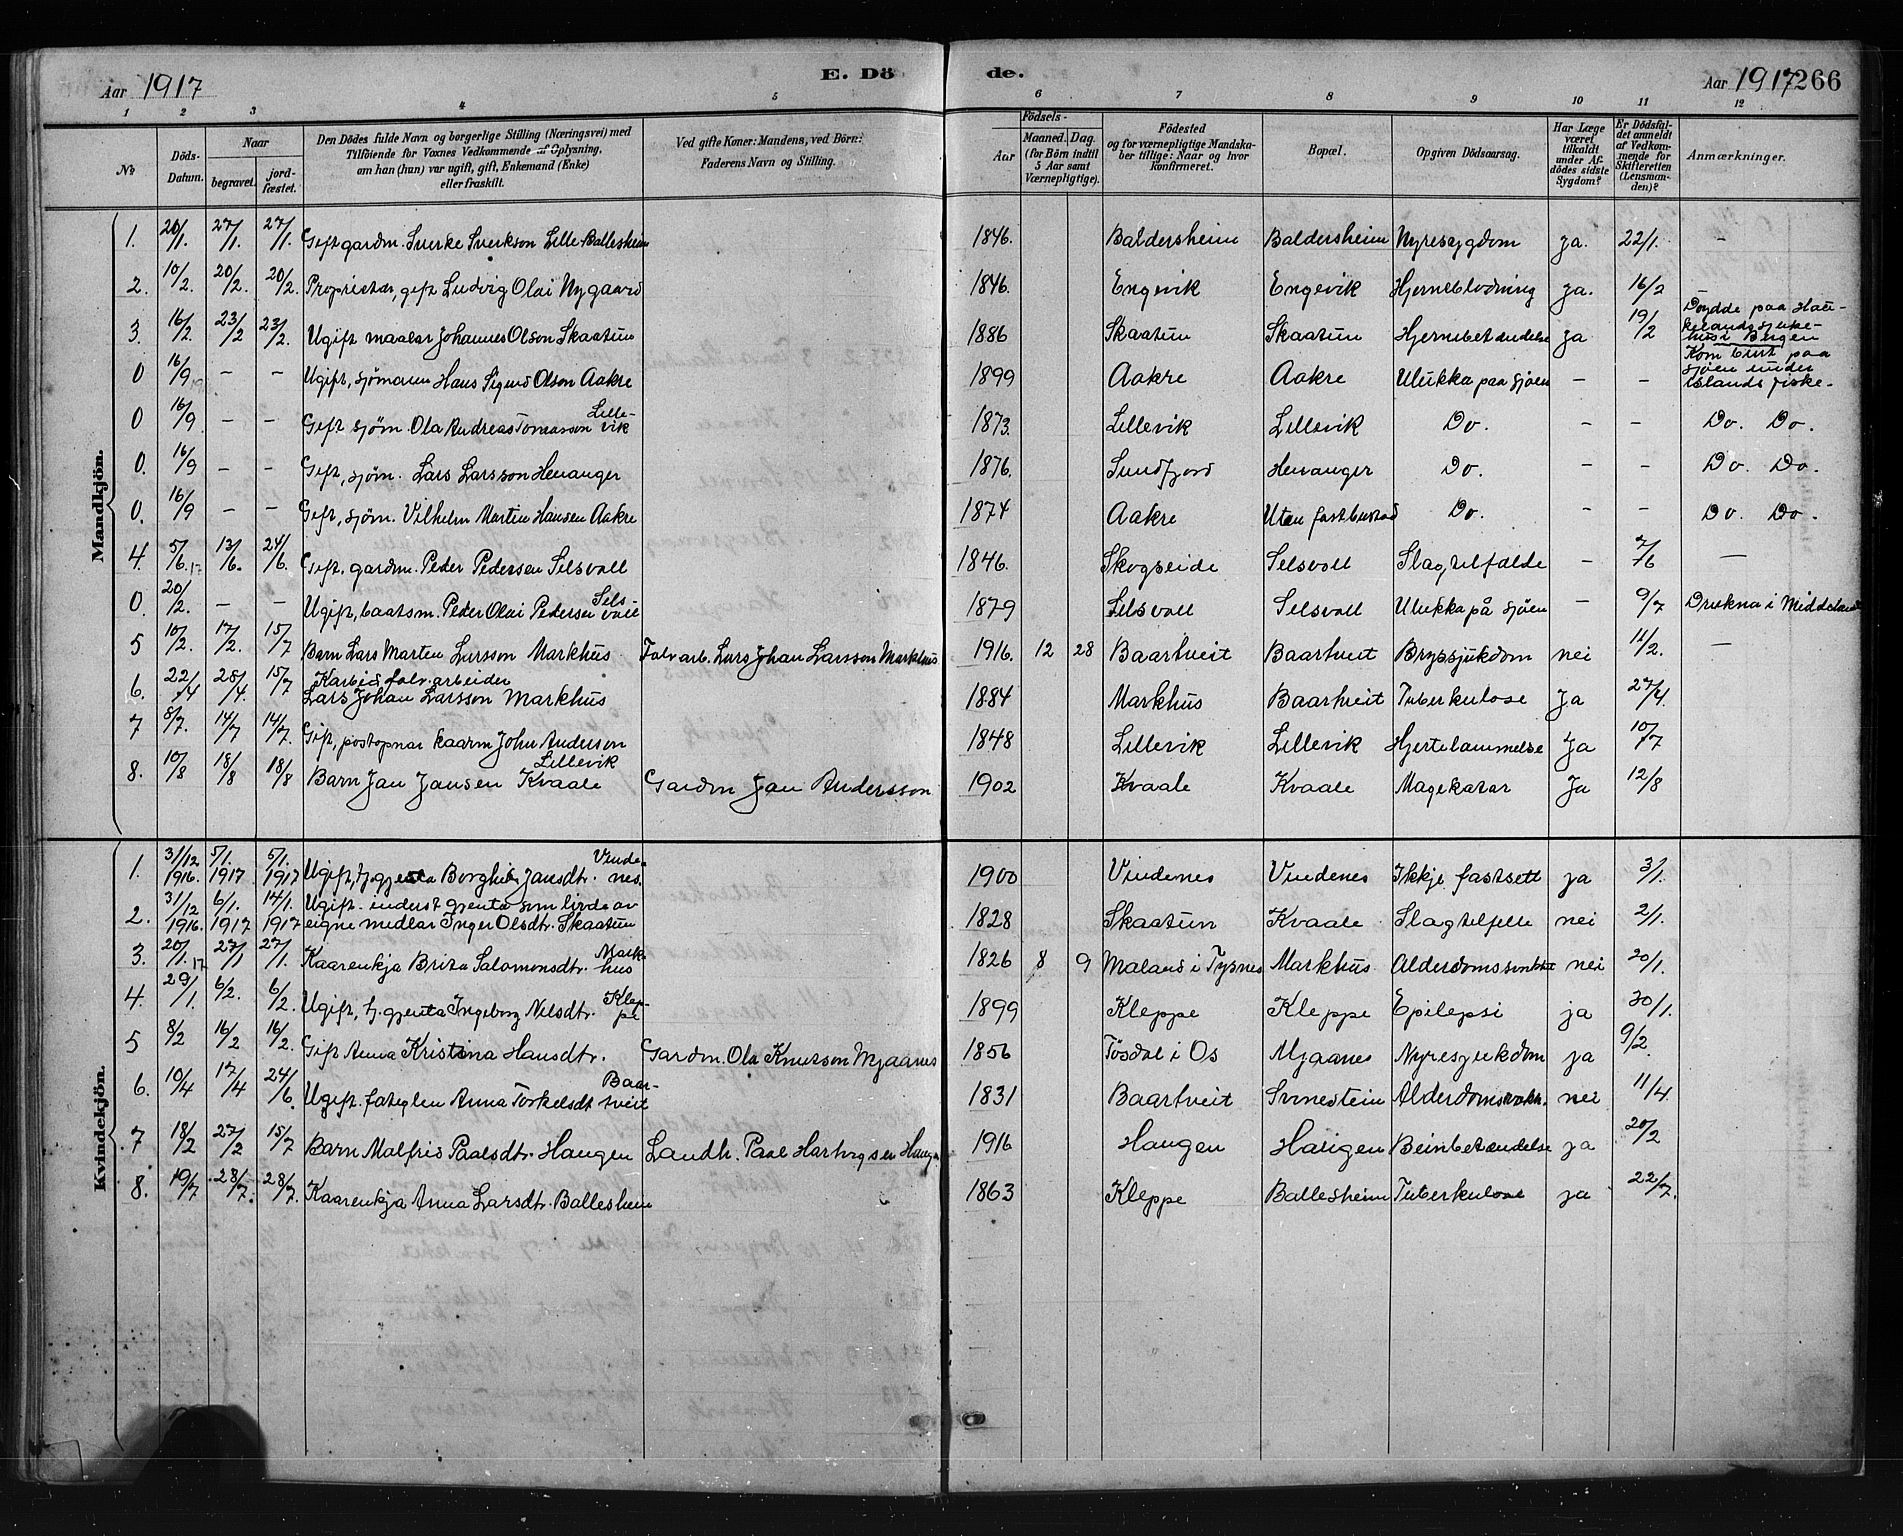 Aar 1917 E. Döde. Aar 1917 266
1 2 3 4 5 6 7 8 9 10 11 12
No
Döds-Datum.
Naar begravet. jord-fæstet.
Den Dödes fulde Navn og borgerlige Stilling (Næringsvei) med
Tilföiende for Voxnes Vedkommende af Oplysning,
om han (hun) var ugift, gift, Enkemand (Enke)
eller fraskilt.
Ved gifte Koner: Mandens, ved Börn:
Faderens Navn og Stilling.
Födsels-
Aar Maaned. Dag.
(for Börn indtil 5 Aar samt Værnepligtige).
Födested
og for værnepligtige Mandska-
ber tillige: Naar og hvor
konfirmeret.
Bopæl.
Opgiven Dödsaarsag.
Har Læge været tilkaldt under Af-dödes sidste Sygdom?
Er Dödsfal-det anmeldt af Vedkom-mende for Skifteretten (Lensman-den)?
Anmærkninger.
Mandkjön.
1. 20/1. 27/1. 27/1. Gift gardm. Sverke Sverkson Lille-Ballesheim 1846. Baldersheim Baldersheim Nyresygdom ja. 22/1. -
2. 10/2. 20/2. 20/2. Proprietær, gift Ludvig Olai Nygaard 1846. Engevik Engevik Hjerneblødning ja. 16/2
3. 16/2. 23/2 23/2. Ugift maalar Johannes Olson Skaatun 1886 Skaatun Skaatun Hjernebetændelse ja 19/2 Døydde paa Hau-kelands sjuke-hus i Bergen
0 16/9 - - Ugift, sjømann Hans Sigurd Olson Aakre 1899 Aakre Aakre Ulukka paa sjøen - - Kom burt paa sjøen under Islands fiske-
0 16/9 - - Gift sjøm. Ola Andreas Tomasson Lille-vik 1873. Lillevik Lillevik Do. - - Do. Do.
0. 16/9 - - Gift, sjøm. Lars Larsson Hevanger 1876. Sundfjord Hevanger Do. - - Do. Do.
0. 16/9 - - Gift, sjøm. Vilhelm Martin Hansen Aakre 1874 Aakre Uten fast bustad Do. - - Do. Do.
4. 5/6.17 13/6. 24/6. Gift. gardm. Peder Pedersen Selsvoll 1846. Skogseide Selsvoll Slagtilfælde - 7/6 -
0. 20/2. - - Ugift, baatsm. Peder Olai Pedersen Sels-voll 1879 Selsvoll Selsvoll Ulukka på sjøen - 9/7 Drukna i Middelhavet
5 10/2. 17/2. 15/7 Barn Lars Marten Larsson Markhus Falv arb. Lars Johan Larsson Markhus 1916. 12 28 Baartveit Baartveit Brystsjukdom nei 11/2. -
6. 22/4 28/4. 15/7 Karbid falv. arbeider
Lars Johan Larsson Markhus 1884 Markhus Baartveit Tuberkulose Ja 27/4.
7 8/7. 14/7 14/7. Gift, postopnar kaarm John Anderson Lillevik 1848 Lillevik Lillevik Hjertelammelse Ja 10/7
8. 10/8 18/8 18/8 Barn Jan Jansen Kvaale Gardm Jan Andersson 1902 Kvaale Kvaale Magekatar Ja 12/8
Kvindekjön.
1. 31/12 1916. 5/1. 1917 5/1. 1917 Ugift, tj. gjenta Borghild Jansdtr. Vinde-nes. 1900 Vindenes Vindenes Ikkje fastsett ja 3/1.
2. 31/12 1916. 6/1. 1917 14/1. 1917 Ugift. inderst gjenta som livde av
eigne medlar Inger Olsdtr. Skaatun 1828 Skaatun Kvaale Slagtilfelle nei 2/1.
3. 20/1.17 27/1 27/1. Kaarenkja Brita Salomonsdtr. Mark-hus 1826 8 9 Maland i Tysnes Markhus. nei 20/1.
4. 29/1. 6/2. 6/2. Ugift, tj. gjenta Ingeborg Nilsdtr. Klep-pe 1899 Kleppe Kleppe Epilepsi ja 30/1.
5 8/2 16/2 16/2. Gift Anna Kristina Hansdtr. Gardm. Ola Knutson Mjaanes 1856 Tøsdal i Os Mjaanes Nyresjukdom ja 9/2.
6. 10/4 17/4 24/6. Ugift. fatiglem Anna Torkelsdt Baar-tveit 1831 Baartveit Svinestein nei 11/4.
7 18/2 27/2 15/7 Barn Malfrid Paalsdtr. Haugen Landh. Paal Hartvigsen Haugen 1916 Haugen Haugen Beinbetændelse ja 20/2
8. 19/7 28/7. 28/7. Kaarenkja Anna Larsdtr. Ballesheim 1863 Kleppe Ballesheim Tuberkulose ja 22/7.